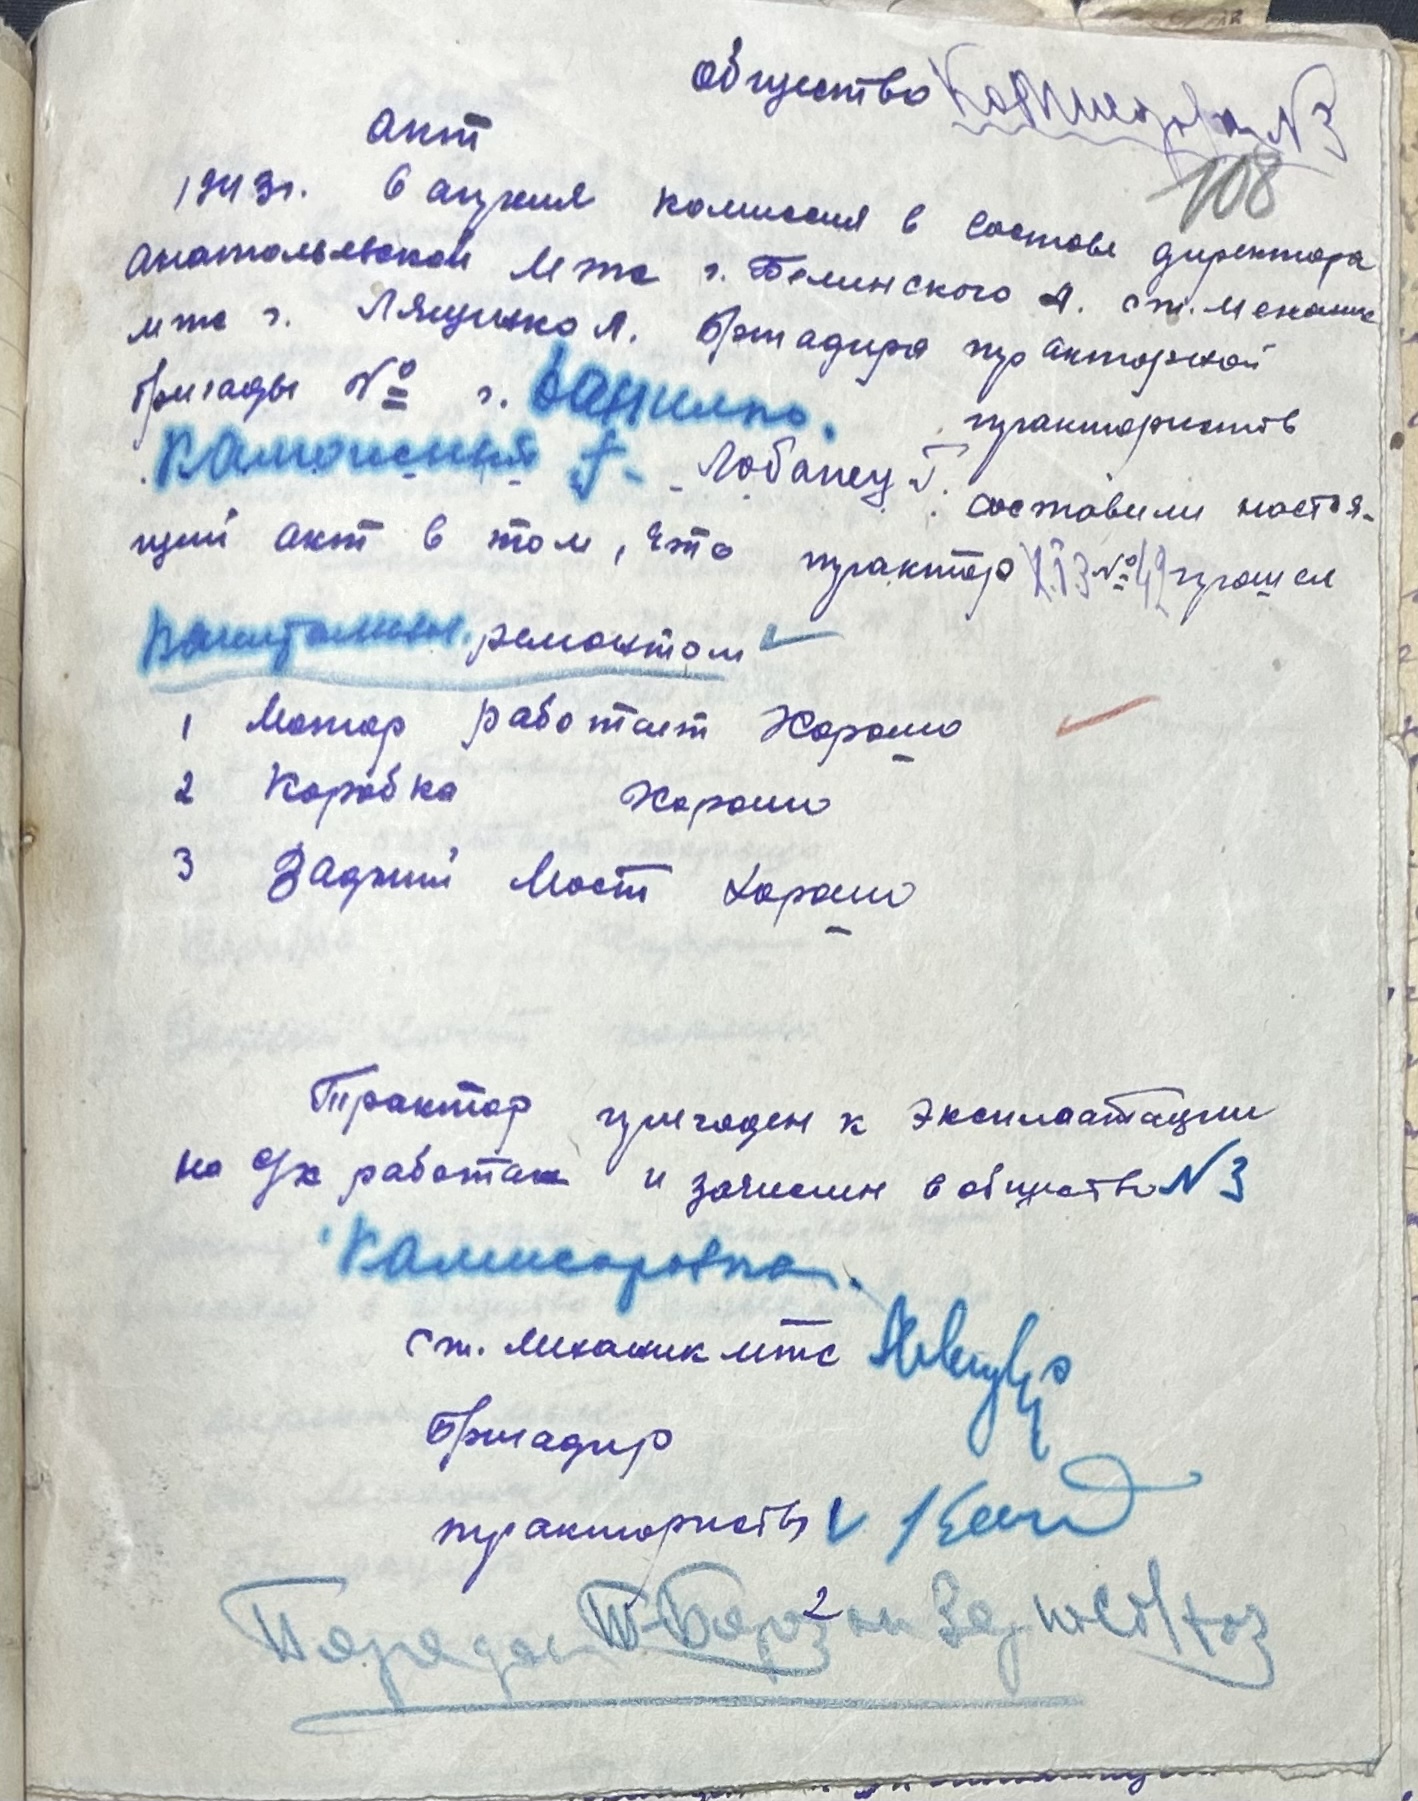 общество №3
108
акт
1943г. 6 апреля комиссия в составе директора
Анатольевской Мтс г. Белинского А. ст. механик
мтс г. Лященко Л. бригадира тракторской
бригады № г. Данилко. трактористов
Лобанец Т. составили настоя-
щий акт в том, что трактор ХТЗ № 42 прошел
ремонтом
1 Мотор работает Хорошо
2 Коробка хорошо
3 Задний Мост хорошо
Трактор пригоден к эксплоатации
на с/х работах и зачислен в общество N 3
Камисаровка.
ст. механик мтс
Бригадир
трактористы